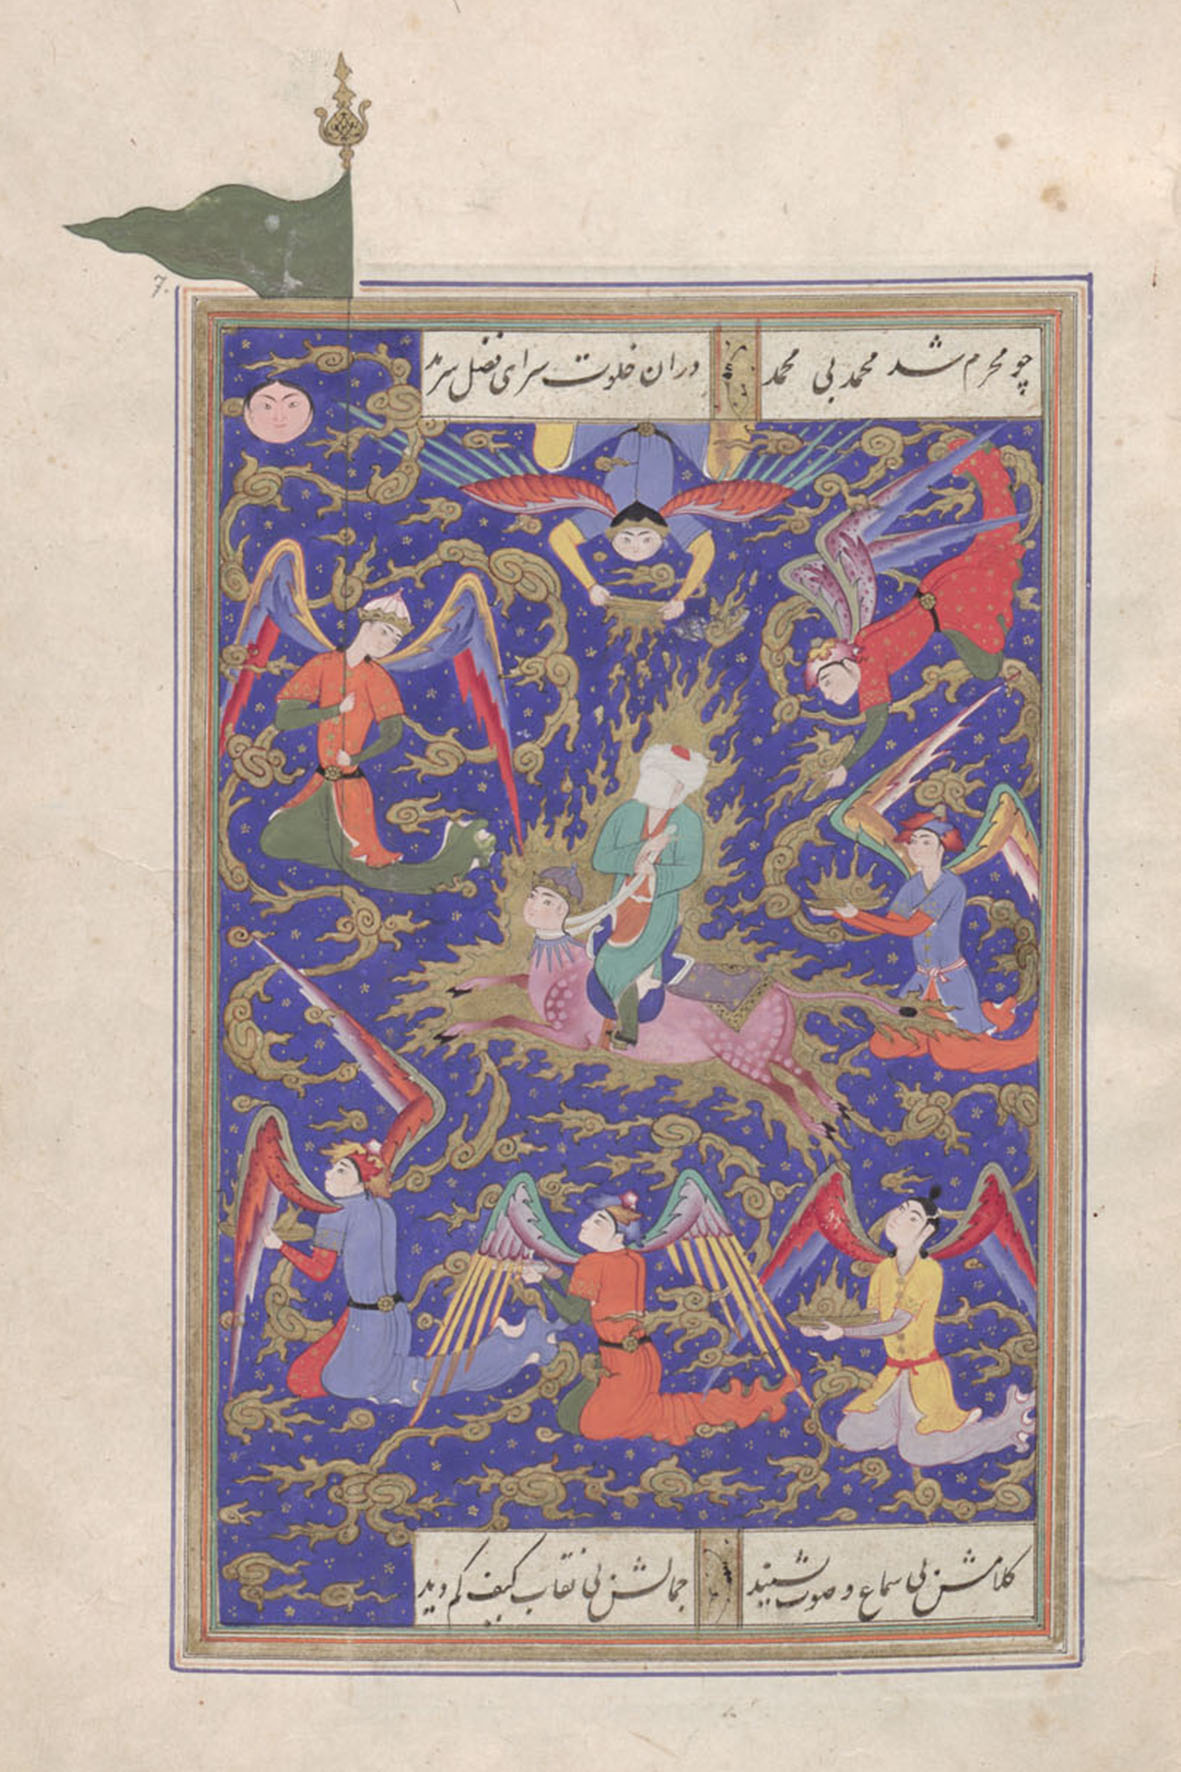 7.
چو محرم شد محمد بی محمد
دران خلوت سرای فضل سرمد
کلامش بی سماع و صوت بشنید
جمالش بی نقاب کیف و کم دید